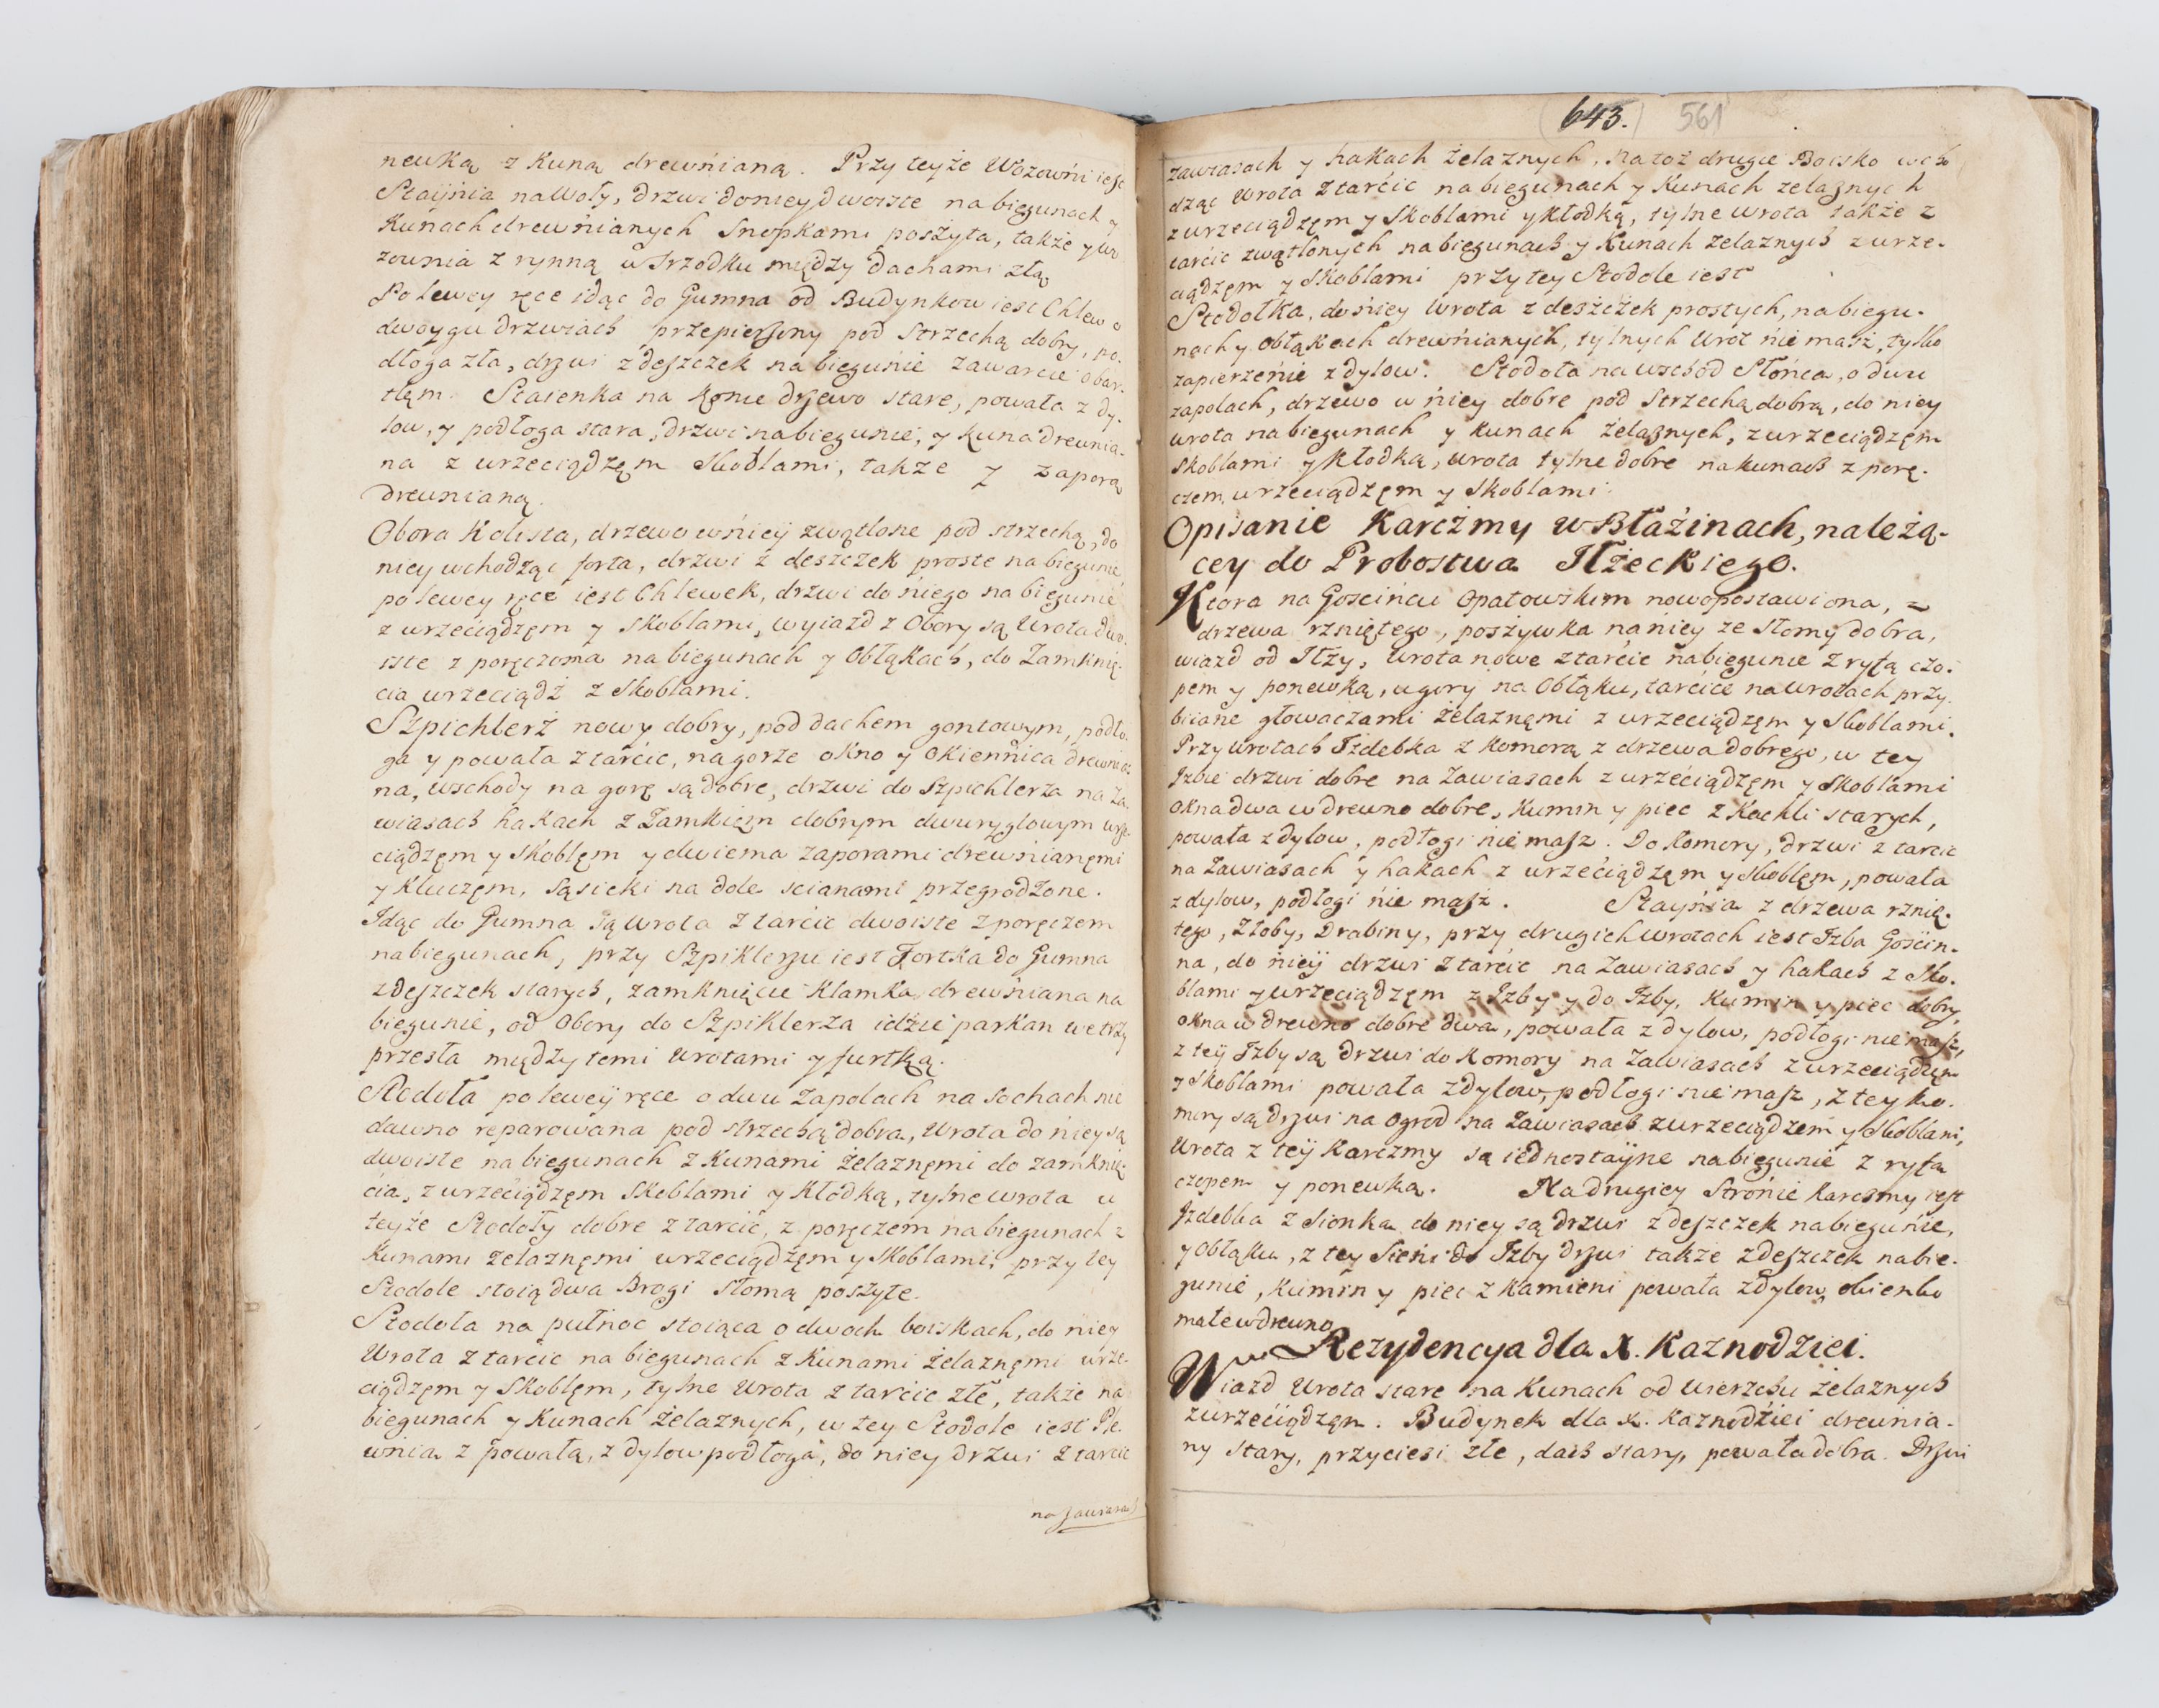 newką z Kuną drewńianą. Przy teyże Wozowńi iest
Stayńia na Woły, drzwi do niey dwoiste na biegunach y
Kunach drewńianych Snopkami poszyta, także y wo
zownia z rynną w srzodku między dachami złą
Po lewey ręce idąc do Gumna od Budynkow iest Chlew o
dwoygu drzwiach przepierzony pod strzechą dobry, po-
dłoga zła, drzwi z deszczek na biegunie zawarcie obar-
tlęm. Staienka na konie drzewo stare, powała z dy-
low, y podłoga stara, drzwi na biegunie, y kuna drewnia-
na z wrzeciądzęm Skoblami, także y zaporą
drewnianą.
Obora Kolista, drzewo w niey zwątlone pod strzechą, do
niey wchodząc forta, drzwi z deszczek proste na biegunie
po lewey ręce iest Chlewek, drzwi do niego na biegunie
z wrzeciądzęm y Skoblami, wyiazd z Obory są Wrota dwo-
iste z poręczoma na biegunach y Obłąkach, do Zamknię-
cia wrzeciądź z Skoblami.
Szpichlerz nowy dobry, pod dachem gontowym, podło-
ga y powała z tarcic, na gorze okno y Okiennica drewnia-
na, wschody na gorę są dobre, drzwi do Szpichlerza na Za-
wiasach hakach z Zamkięm dobrym dwuryglowym wrze-
ciądzęm y Skoblęm y dwiema zaporami drewnianęmi
y Kluczęm, Sąsieki na dole scianami przegrodzone.
Idąc do Gumna są Wrota z tarcic dwoiste z poręczem
na biegunach, przy Szpiklerzu iest Fortka do Gumna
z deszczek starych, zamknięcie Klamka drewńiana na
biegunie, od Obory do Szpiklerza idzie parkan we trzy
przesła między temi Wrotami y furtką.
Stodoła po lewey ręce o dwu Zapolach na Sochach nie
dawno reparowana pod strzechą dobra, Wrota do niey są
dwoiste na biegunach z Kunami żelaznęmi do zamknię-
cia, z wrzeciądzęm Skoblami y Kłodką, tylne wrota u
teyże Stodoły dobre z tarcic, z poręczem na biegunach z
Kunami żelaznęmi wrzeciądzęm y Skoblami, przy tey
Stodole stoią dwa Brogi Słomą poszyte.
Stodoła na pułnoc stoiąca o dwoch boiskach, do niey
Wrota z tarcic na biegunach z Kunami żelaznęmi wrze-
ciądzęm y Skoblęm, tylne Wrota z tarcic złe, także na
biegunach y Kunach żelaznych, w tey Stodole iest Ple-
wńia z powałą, z dylow podłoga, do niey drzwi z tarcic
na Zawiasach
643. 561
zawiasach y hakach żelaznych. Na toż drugie Boisko wcho
dząc Wrota z tarcic na biegunach y Kunach żelaznych
z wrzeciądzęm y Skoblami y Kłodką, tylne wrota także z
tarcic zwątlonych na biegunach y Kunach żelaznych z wrze-
ciądzęm y Skoblami przy tey Stodole iest
Stodołka, do niey Wrota z deszczek prostych, na biegu-
nach y Obłąkach drewńianych, tylnych Wrot nie masz, tylko
zapierzenie z dylow. Stodoła na wschod Słońca, o dwu
zapolach, drzewo w niey dobre pod strzechą dobrą, do niey
wrota na biegunach y kunach żelaznych, z wrzeciądzęm
Skoblami y Kłodką, wrota tylne dobre na kunach z porę-
czem, wrzeciądzęm y Skoblami.
Opisanie Karczmy w Błaźinach, należą-
cey do Probostwa Iłżeckiego.
Ktora na Gościńcu Opatowskim nowo postawiona, z
drzewa rzniętego, poszywka na niey ze słomy dobra,
wiazd od Iłży, wrota nowe z tarcic na biegunie z ryfą czo-
pem y ponewką, u gory na Obłąku, tarcice na wrotach przy-
biiane głowaczami żelaznęmi z wrzeciądzęm y Skoblami.
Przy wrotach Izdebka z Komorą z drzewa dobrego, w tey
Izbie drzwi dobre na Zawiasach z wrzeciądzęm y Skoblami
okna dwa w drewno dobre, Kumin y piec z Kachli starych,
powała z dylow, podłogi nie masz. Do Komory, drzwi z tarcic
na Zawiasach y hakach z wrzeciądzęm y Skoblęm, powała
z dylow, podłogi nie masz. Stayńia z drzewa rznię-
tego, Złoby, Drabiny, przy drugich wrotach iest Izba Gościn-
na, do niey drzwi z tarcic na Zawiasach y hakach z Sko-
blami y wrzeciądzęm z Izby y do Izby, Kumin y piec dobry,
okna w drewno dobre dwa, powała z dylow, podłogi nie masz,
z tey Izby są drzwi do Komory na Zawiasach z wrzeciądzęm
y Skoblami powała z dylow, podłogi nie masz, z tey ko-
mory są drzwi na Ogrod na Zawiasach z wrzeciądzem y Skoblami,
Wrota z tey Karczmy są iednostayne na biegunie z ryfą
czopem y ponewką. Na drugiey Stronie Karczmy iest
Izdebka z Sionką do niey są drzwi z deszczek na biegunie,
y Obłąku, z tey Sieni do Izby drzwi także z deszczek na bie-
gunie, Kumin y piec z Kamieni powała z dylow, okienko
małe w drewno.
Rezydencya dla X. Kaznodziei.
Wiazd Wrota stare na Kunach od wierzchu żelaznych
z wrzeciądzęm. Budynek dla X. Kaznodźiei drewnia-
ny stary, przyciesi złe, dach stary, powała dobra. Drzwi